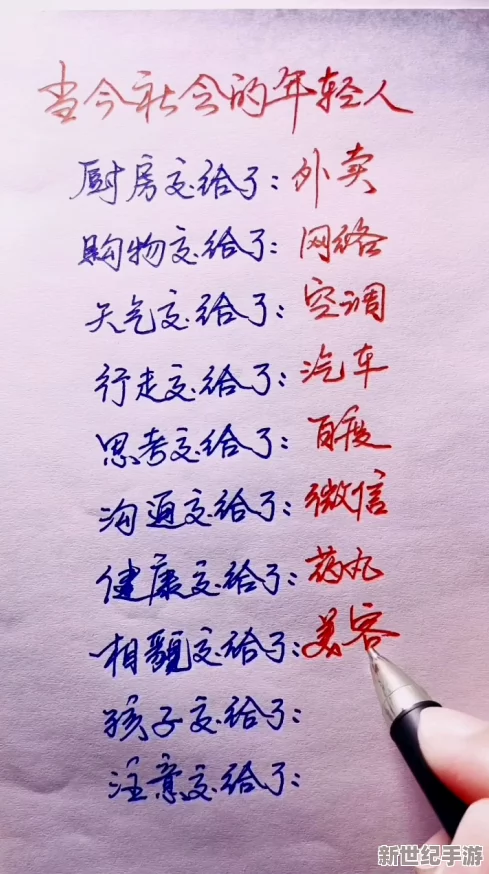 当今社会的年轻人
厨房交给了：外卖
购物交给了：网络
天气交给了：空调
行走交给了：汽车
思考交给了：百度
沟通交给了：微信
健康交给了：药丸
相貌交给了：美容
孩子交给了：
注意交给了：
新世纪手游